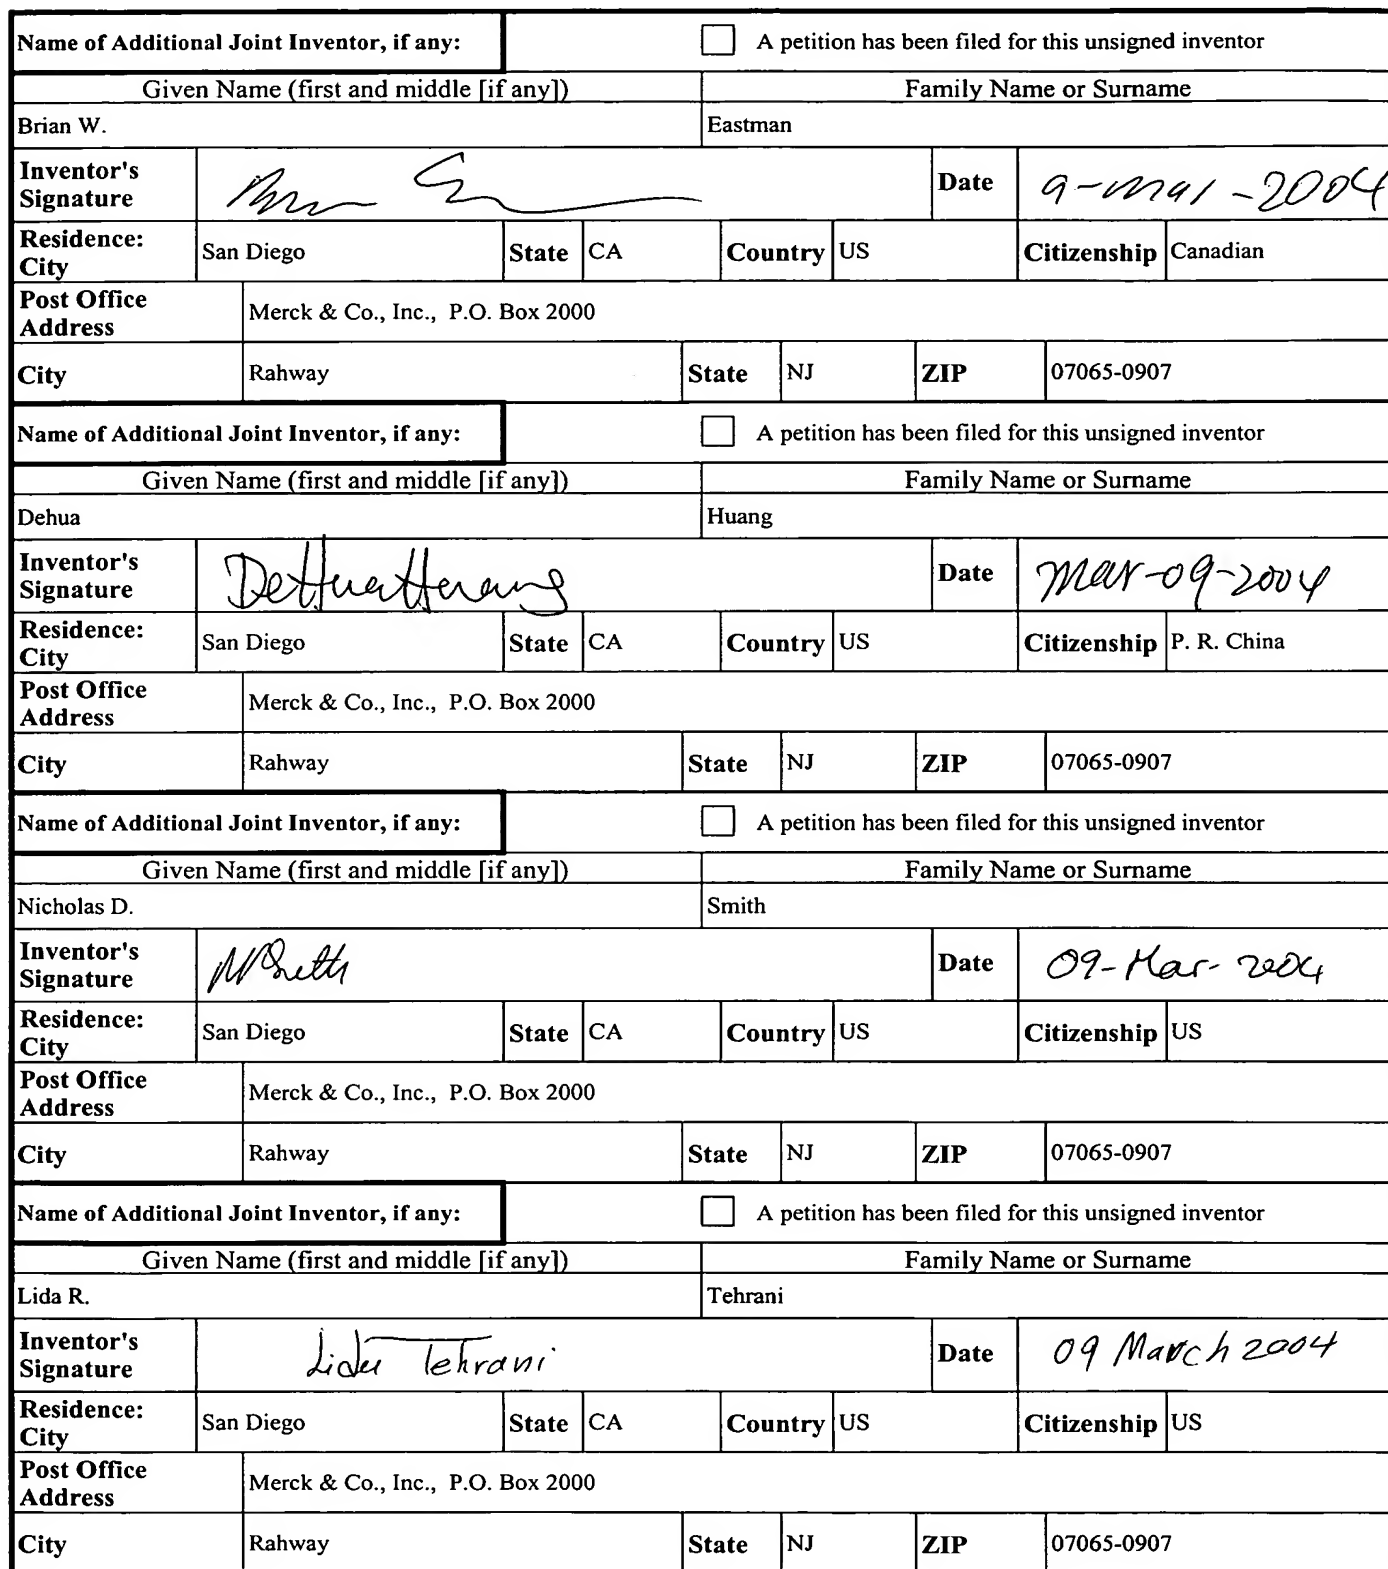 Name of Additional Joint Inventor, if any: A petition has been filed for this unsigned inventor
Given Name (first and middle [if any]) Family Name or Surname
Brian W. Eastman
Inventor's Signature Date 9-mar-2004
Residence: City San Diego State CA Country US Citizenship Canadian
Post Office Address Merck & Co., Inc., P.O. Box 2000
City Rahway State NJ ZIP 07065-0907
Name of Additional Joint Inventor, if any: A petition has been filed for this unsigned inventor
Given Name (first and middle [if any]) Family Name or Surname
Dehua Huang
Inventor's Signature DeHua Huang Date Mar-09-2004
Residence: City San Diego State CA Country US Citizenship P. R. China
Post Office Address Merck & Co., Inc., P.O. Box 2000
City Rahway State NJ ZIP 07065-0907
Name of Additional Joint Inventor, if any: A petition has been filed for this unsigned inventor
Given Name (first and middle [if any]) Family Name or Surname
Nicholas D. Smith
Inventor's Signature Date 09-Mar-2004
Residence: City San Diego State CA Country US Citizenship US
Post Office Address Merck & Co., Inc., P.O. Box 2000
City Rahway State NJ ZIP 07065-0907
Name of Additional Joint Inventor, if any: A petition has been filed for this unsigned inventor
Given Name (first and middle [if any]) Family Name or Surname
Lida R. Tehrani
Inventor's Signature Lida Tehrani Date 09 March 2004
Residence: City San Diego State CA Country US Citizenship US
Post Office Address Merck & Co., Inc., P.O. Box 2000
City Rahway State NJ ZIP 07065-0907